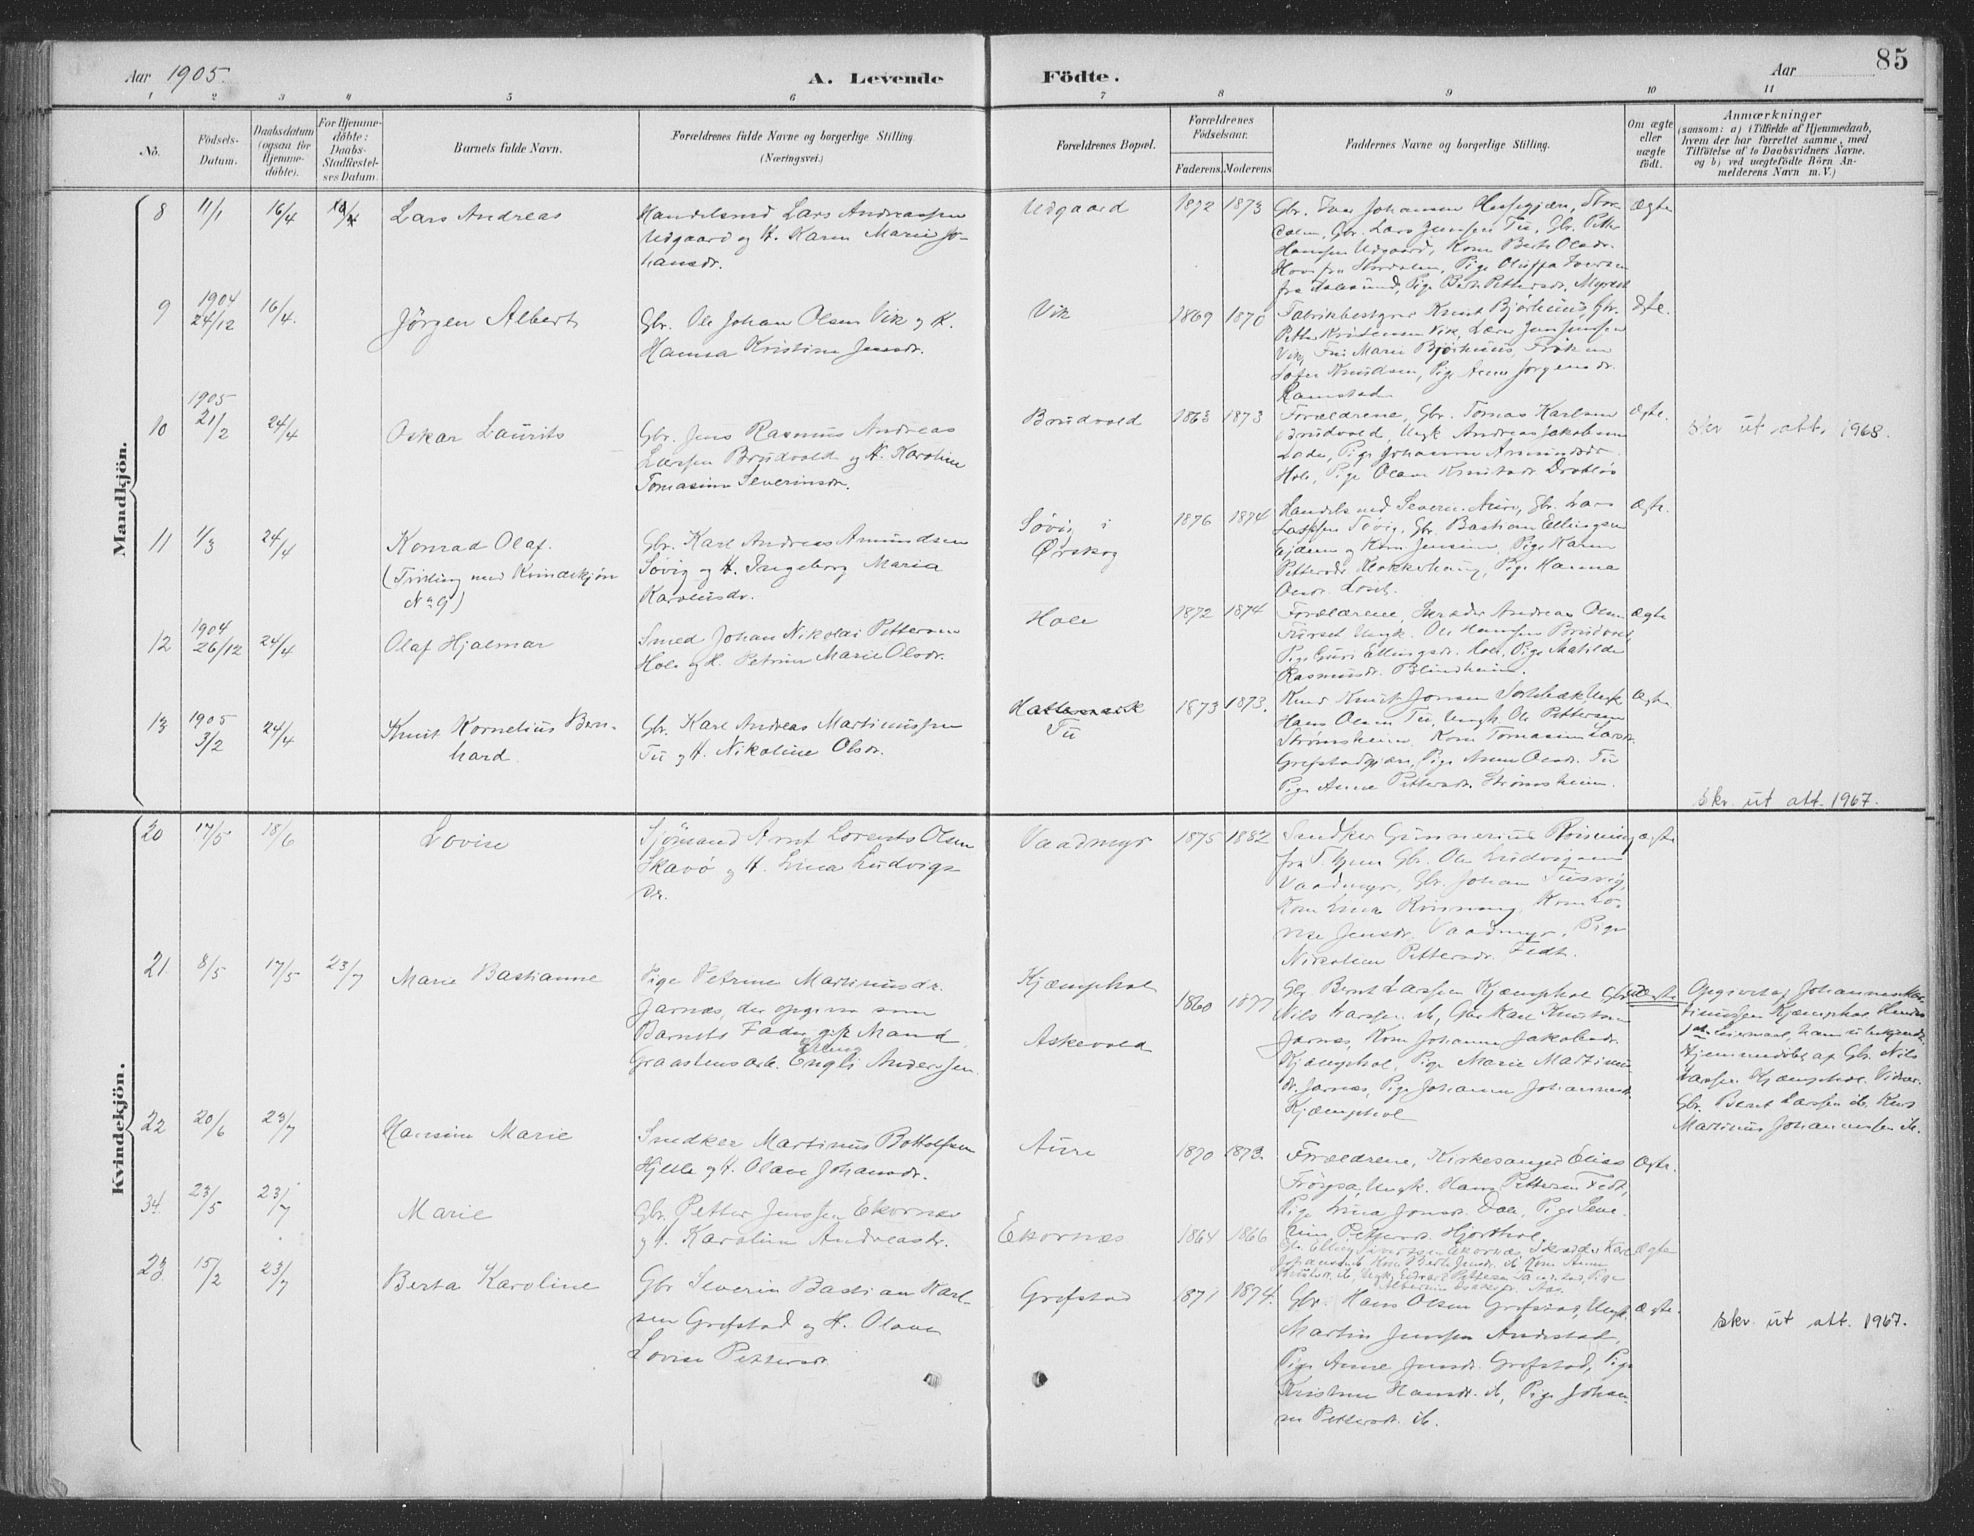 Aar 1905.
A. Levende Födte.
Aar
85
1 2 3 4 5 6 7 8 9 10 11
No.
Födsels-Datum.
Daabsdatum (ogsaa for Hjemme-döbte).
For Hjemme-döbte: Daabs-Stadfæstel-ses Datum.
Barnets fulde Navn.
Forældrenes fulde Navne og borgerlige Stilling.
(Næringsvei.)
Forældrenes Bopæl.
Forældrenes Födselsaar.
Faderens. Moderens.
Faddernes Navne og borgerlige Stilling.
Om ægte eller uægte födt.
Anmærkninger
(saasom: a) i Tilfælde af Hjemmedaab, hvem der har forrettet samme, med Tilföielse af to Daabsvidners Navne, og b) ved uægtefödte Börn An-melderens Navn m. V.)
Mandkjön.
8 11/1 16/4 Lars Andreas
Handelsmd Lars Andreassen
Udgaard og H. Karen Marie Jo-
hansdr.
Udgaard 1872 1873
Gbr. Ivar Johansen
Gbr. Lars Jensen Tu, Gbr. Petter
Hansen Udgaard, Kone Berte Olsdr.
Hove fra Stordalen, Pige Oluffa Iversen
fra Aalesund, Pige Berte Pettersdr. Myrset
Ægte
9 1904 24/12 16/4. Jörgen Albert
Gbr. Ole Johan Olsen Vik og H.
Hanna Kristine Jensdr.
Vik 1869 1870
Fabrikbestyrer Knut Bjørhuus, Gbr.
Petter Kristensen Vik, Lærer Jens Jensen
Vik, Fru Marie Bjørhuus, Frøken
Knudsen, Pige Anne Jørgensdr.
Ramstad
Ægte.
10 1905 21/2 24/4 Oskar Laurits
Gbr. Jens Rasmus Andreas
Larssen Brudvold og H. Karoline
Tomasine Severinsdr.
Brudvold 1863 1873
Forældrene, Gbr. Tomas Karlsen
Brudvold, Ungk. Andreas Jakobsen
Lade, Pige Johanne Amundsdr.
Hole, Pige Olave Knutsdr. Drabløs
Ægte.
Skr. ut att. 1968.
11 1/3 24/4 Konrad Olaf.
(Tvilling med Kvindekjøn
No 9)
Gbr. Karl Andreas Amundsen
Søvig og H. Ingeborg Maria
Karolusdr.
Søvig i
Ørskog
1876 1874
Handelsmd Severin Aure, Gbr. Lars
Søvig, Gbr. Bastian Ellingsen
og Kone Jensine, Pige Karen
Pettersdr. Klokkerhaug, Pige Hanna
Olsdr.
Ægte.
12 1904 26/12 24/4 Olaf Hjalmar
Smed Johan Nikolai Pettersen
Hole og H. Petrine Marie Olsdr.
Hole 1872 1874
Forældrene, Skræder Andreas Olsen
Ungk. Ole Hansen Brudvold
Pige Guri Ellingsdr. Hole, Pige Matilde
Rasmusdr. Blindheim.
Ægte
13 1905 3/2 24/4 Knut Kornelius Bern-
hard.
Gbr. Karl Andreas Martinussen
Tu og H. Nikoline Olsdr.
Tu
1873 1873.
Knut Jonsen Ungk.
Hans Olsen Tu, Ungk. Ole Pettersen
Strømsheim. Kone Tomasine Larsdr.
Grefstadgjære, Pige Anne Olsdr. Tu
Pige Anne Pettersdr. Strømsheim.
Ægte
Skr. ut att. 1967.
Kvindekjön.
20 17/5 18/6 Lovise
Sjömand Arnt Lorents Olsen
Skavø og H. Lina Ludvigs
dr.
Vaadmyr 1875 1882
Snedker Gunnerius Rönning
fra Gbr. Ole Ludvigsen
Vaadmyr, Gbr. Johan Tusvig,
Kone Lina Rönning, Kone Lo-
vise Jensdr. Vaadmyr, Pige
Nikoline Pettersdr. Fedt.
Ægte
21. 8/5 17/5 23/7 Marie Bastianne
Pige Petrine Martinusdr.
Jarnæs, der opgiver som
Barnets Fader gift Mand
Graastensarb. Engli Anderssen.
Elling
Kjæmphol
Askevold
1860 1877
Gbr. Bernt Larssen Kjæmphol, Gbr.
Nils Larssen ib., Gbr. Karl Knutsen
Jarnæs, Kone Johanne Jakobsdr.
Kjæmphol, Pige Marie Martinus
dr. Jarnæs, Pige Johanne Johannesdr.
Kjæmphol
Uægte
Opgivet af Johannes Mar-
tinussen Kjæmphol. Hendes
1ste Leiermaal, hans ubekjendt.
Hjemmedöbt af Gbr. Nils
Larsen Kjæmphol. Vidner:
Gbr. Bernt Larsen ib.
Martinus Johannessen ib.
22 20/6 23/7 Hansine Marie
Snedker Martinus Bottolfsen
Hjelle og H. Olave Johansdr.
Aure 1870 1872.
Forældrene, Kirkesanger Elias
Ungk. Hans Pettersen Fedt,
Pige Lina Jonsdr. Dale, Pige
Pettersdr. Hjorthol
Ægte.
34. 23/5 23/7 Marie
Gbr. Petter Jenssen Ekornæs
og H. Karoline Andreasdr.
Ekornæs 1864 1866
Gbr. Elling Ekornæs, Skræder Karl
Johansen ib. Kone Berte Jensdr. ib. Kone Anne
Knutsdr. ib., Ungk. Edvard Pettersen Pige
Ægte
23 15/2 23/7 Berta Karoline
Gbr Severin Bastian Karl-
sen Grefstad og H. Olave
Lovise Pettersdr.
Grefstad 1871 1874.
Gbr. Hans Olsen Grefstad, Ungk.
Martin Jensen Andestad,
Pige Anne Jensdr. Grefstad, Pige
Kristine Hansdr. ib., Pige Johan-
ne Pettersdr. ib.
Ægte.
Skr. ut att. 1967.